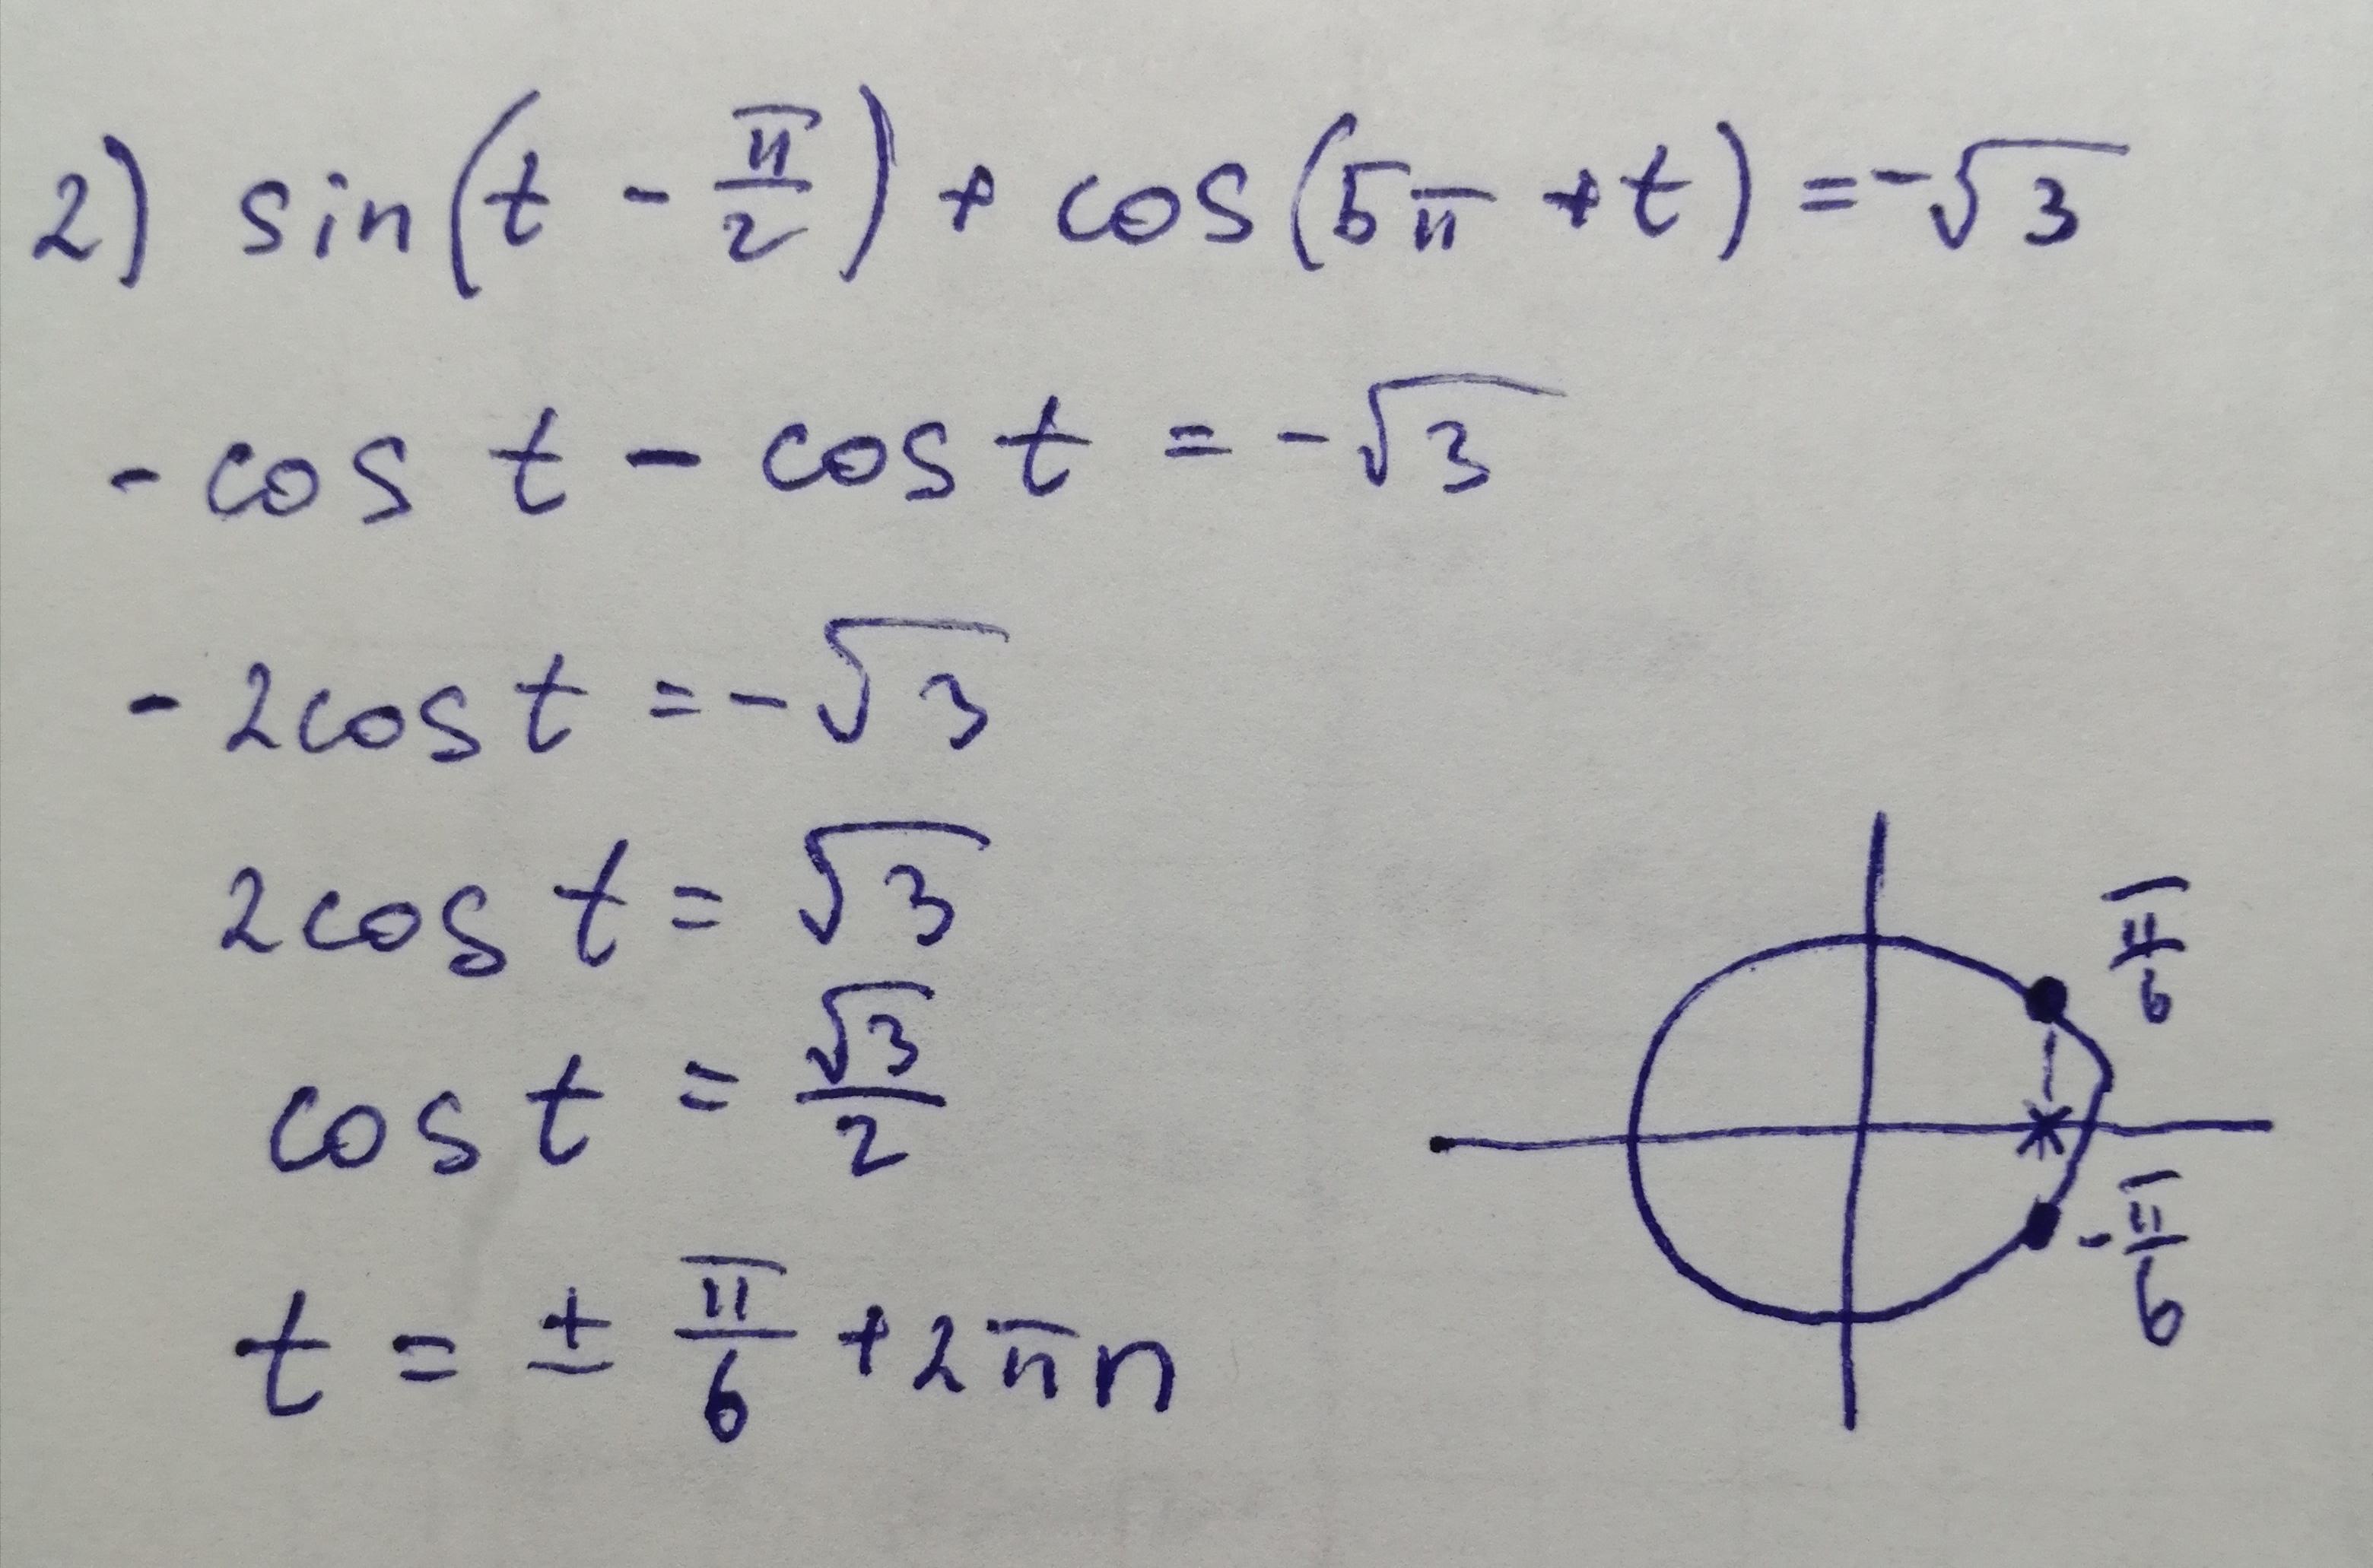 2) sin(t - π/2) + cos(5π + t) = -√3
-cos t - cos t = -√3
-2cos t = -√3
2cos t = √3
cos t = √3/2
t = ± π/6 + 2πn
π/6
-π/6